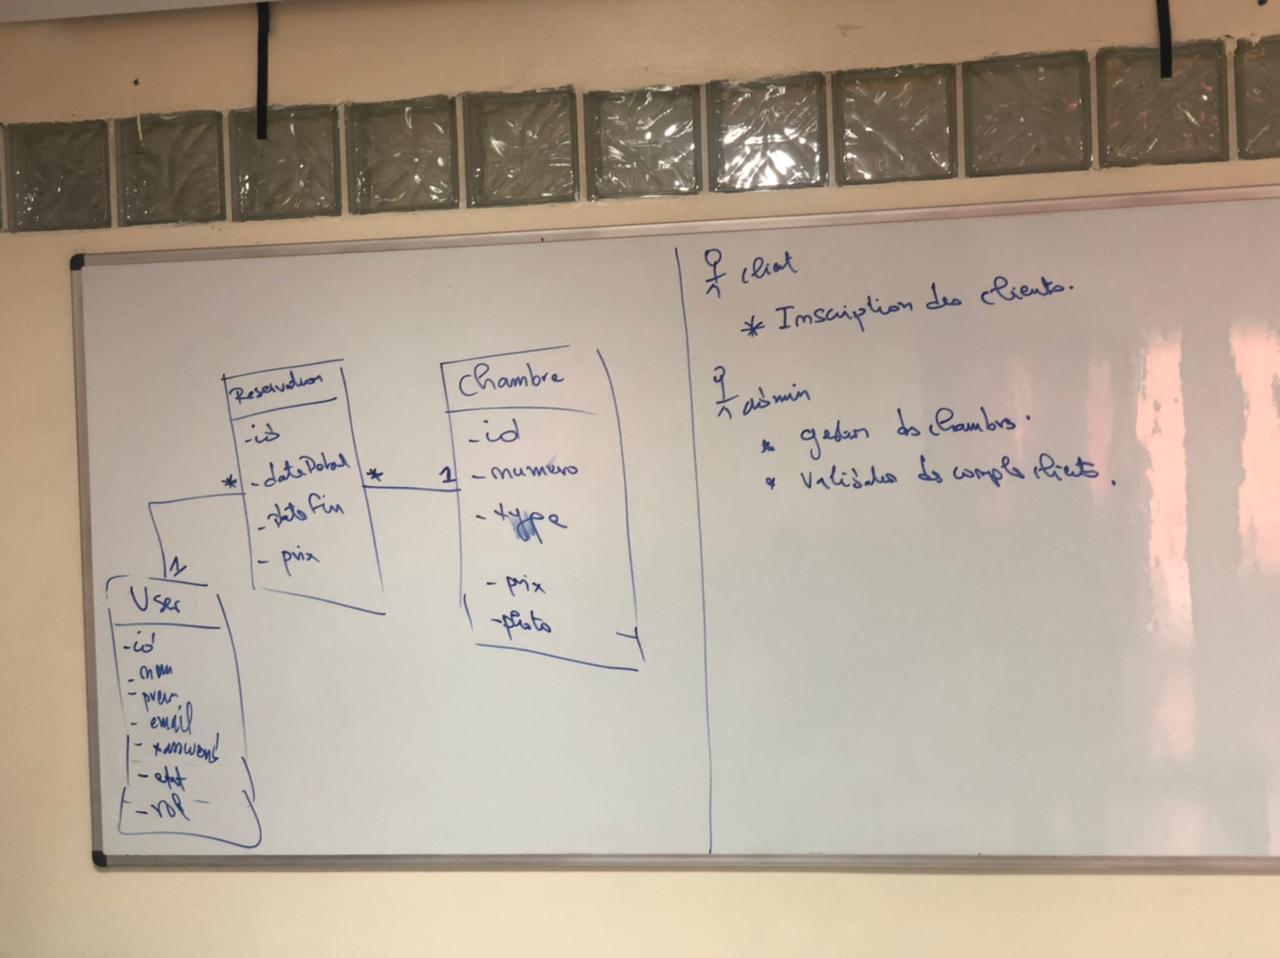 Reservation
- id
- date Debut
- date Fin
- prix
*
*
1
Chambre
- id
- numero
- type
- prix
- photo
1
User
- id
- nom
- pren
- email
- password
- etat
- rol
client
* Inscription des clients.
admin
* gestion des chambres.
* Validation des compte clients.